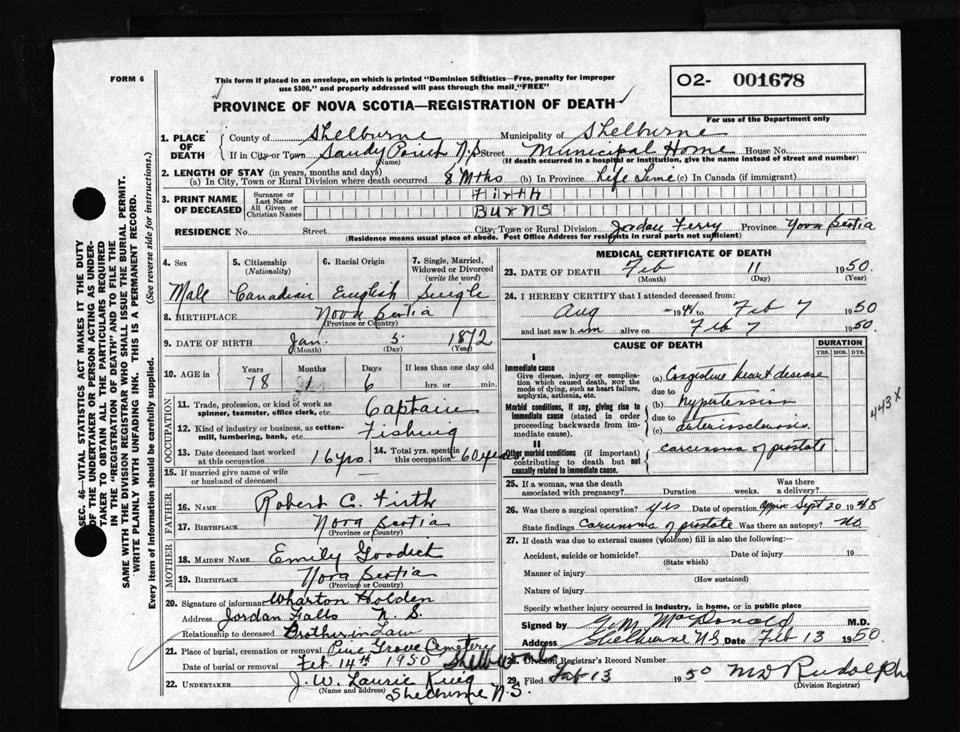 FORM 6
This form if placed in an envelope, on which is printed "Dominion Statistics—Free, penalty for improper
use $300," and properly addressed will pass through the mail, "FREE"
PROVINCE OF NOVA SCOTIA—REGISTRATION OF DEATH
O2- 001678
For use of the Department only
SEC. 46—VITAL STATISTICS ACT MAKES IT THE DUTY
OF THE UNDERTAKER OR PERSON ACTING AS UNDER-
TAKER TO OBTAIN ALL THE PARTICULARS REQUIRED
IN THE "REGISTRATION OF DEATH" AND TO FILE THE
SAME WITH THE DIVISION REGISTRAR WHO SHALL ISSUE THE BURIAL PERMIT.
WRITE PLAINLY WITH UNFADING INK. THIS IS A PERMANENT RECORD.
Every item of information should be carefully supplied. (See reverse side for instructions.)
1. PLACE OF DEATH
County of Shelburne Municipality of Shelburne
If in City or Town Sandy Point N.S. Street Municipal Home House No.
(Name) (If death occurred in a hospital or institution, give the name instead of street and number)
2. LENGTH OF STAY (in years, months and days)
(a) In City, Town or Rural Division where death occurred 8 Mths (b) In Province Life Time (c) In Canada (if immigrant)
3. PRINT NAME OF DECEASED
Surname or Last Name Firth
All Given or Christian Names Burns
RESIDENCE No. Street City, Town or Rural Division Jordan Ferry Province Nova Scotia
(Residence means usual place of abode. Post Office Address for residents in rural parts not sufficient)
4. Sex
Male
5. Citizenship (Nationality)
Canadian
6. Racial Origin
English
7. Single, Married, Widowed or Divorced (write the word)
Single
8. BIRTHPLACE Nova Scotia
(Province or Country)
9. DATE OF BIRTH Jan. 5 1872
(Month) (Day) (Year)
10. AGE in Years Months Days If less than one day old
78 1 6 hrs. or min.
OCCUPATION
11. Trade, profession, or kind of work as spinner, teamster, office clerk, etc. Captain
12. Kind of industry or business, as cotton-mill, lumbering, bank, etc. Fishing
13. Date deceased last worked at this occupation 16 yrs. 14. Total yrs. spent in this occupation 60 years
15. If married give name of wife or husband of deceased
FATHER
16. NAME Robert C. Firth
17. BIRTHPLACE Nova Scotia
(Province or Country)
MOTHER
18. MAIDEN NAME Emily Goodick
19. BIRTHPLACE Nova Scotia
(Province or Country)
20. Signature of informant Wharton Holden
Address Jordan Falls N. S.
Relationship to deceased Brother in Law
21. Place of burial, cremation or removal Pine Grove Cemetery
Date of burial or removal Feb 14th 1950 Shelburne
22. UNDERTAKER J. W. Laurie King
(Name and address) Shelburne N.S.
MEDICAL CERTIFICATE OF DEATH
23. DATE OF DEATH Feb 11 1950.
(Month) (Day)
24. I HEREBY CERTIFY that I attended deceased from:
Aug - 1941 to Feb 7 1950
and last saw him alive on Feb 7 1950.
CAUSE OF DEATH
DURATION
YRS. MOS. DYS.
I
Immediate cause
Give disease, injury or complication which caused death, NOT the mode of dying, such as heart failure, asphyxia, asthenia, etc.
(a) Congestive heart disease
due to
Morbid conditions, if any, giving rise to immediate cause (stated in order proceeding backwards from immediate cause).
(b) hypertension
due to
(c) arteriosclerosis
II
Other morbid conditions (if important) contributing to death but not causally related to immediate cause.
carcinoma of prostate
443X
25. If a woman, was the death associated with pregnancy? Duration weeks. Was there a delivery?
26. Was there a surgical operation? Yes Date of operation Appx Sept 20 1948
State findings Carcinoma of prostate Was there an autopsy? No
27. If death was due to external causes (violence) fill in also the following:—
Accident, suicide or homicide? Date of injury 19
(State which)
Manner of injury
(How sustained)
Nature of injury
Specify whether injury occurred in Industry, in home, or in public place
Signed by McDonald M.D.
Address Shelburne N.S. Date Feb 13 1950.
28. Division Registrar's Record Number
29. Filed Feb 13 1950 MD Rudolph
(Division Registrar)